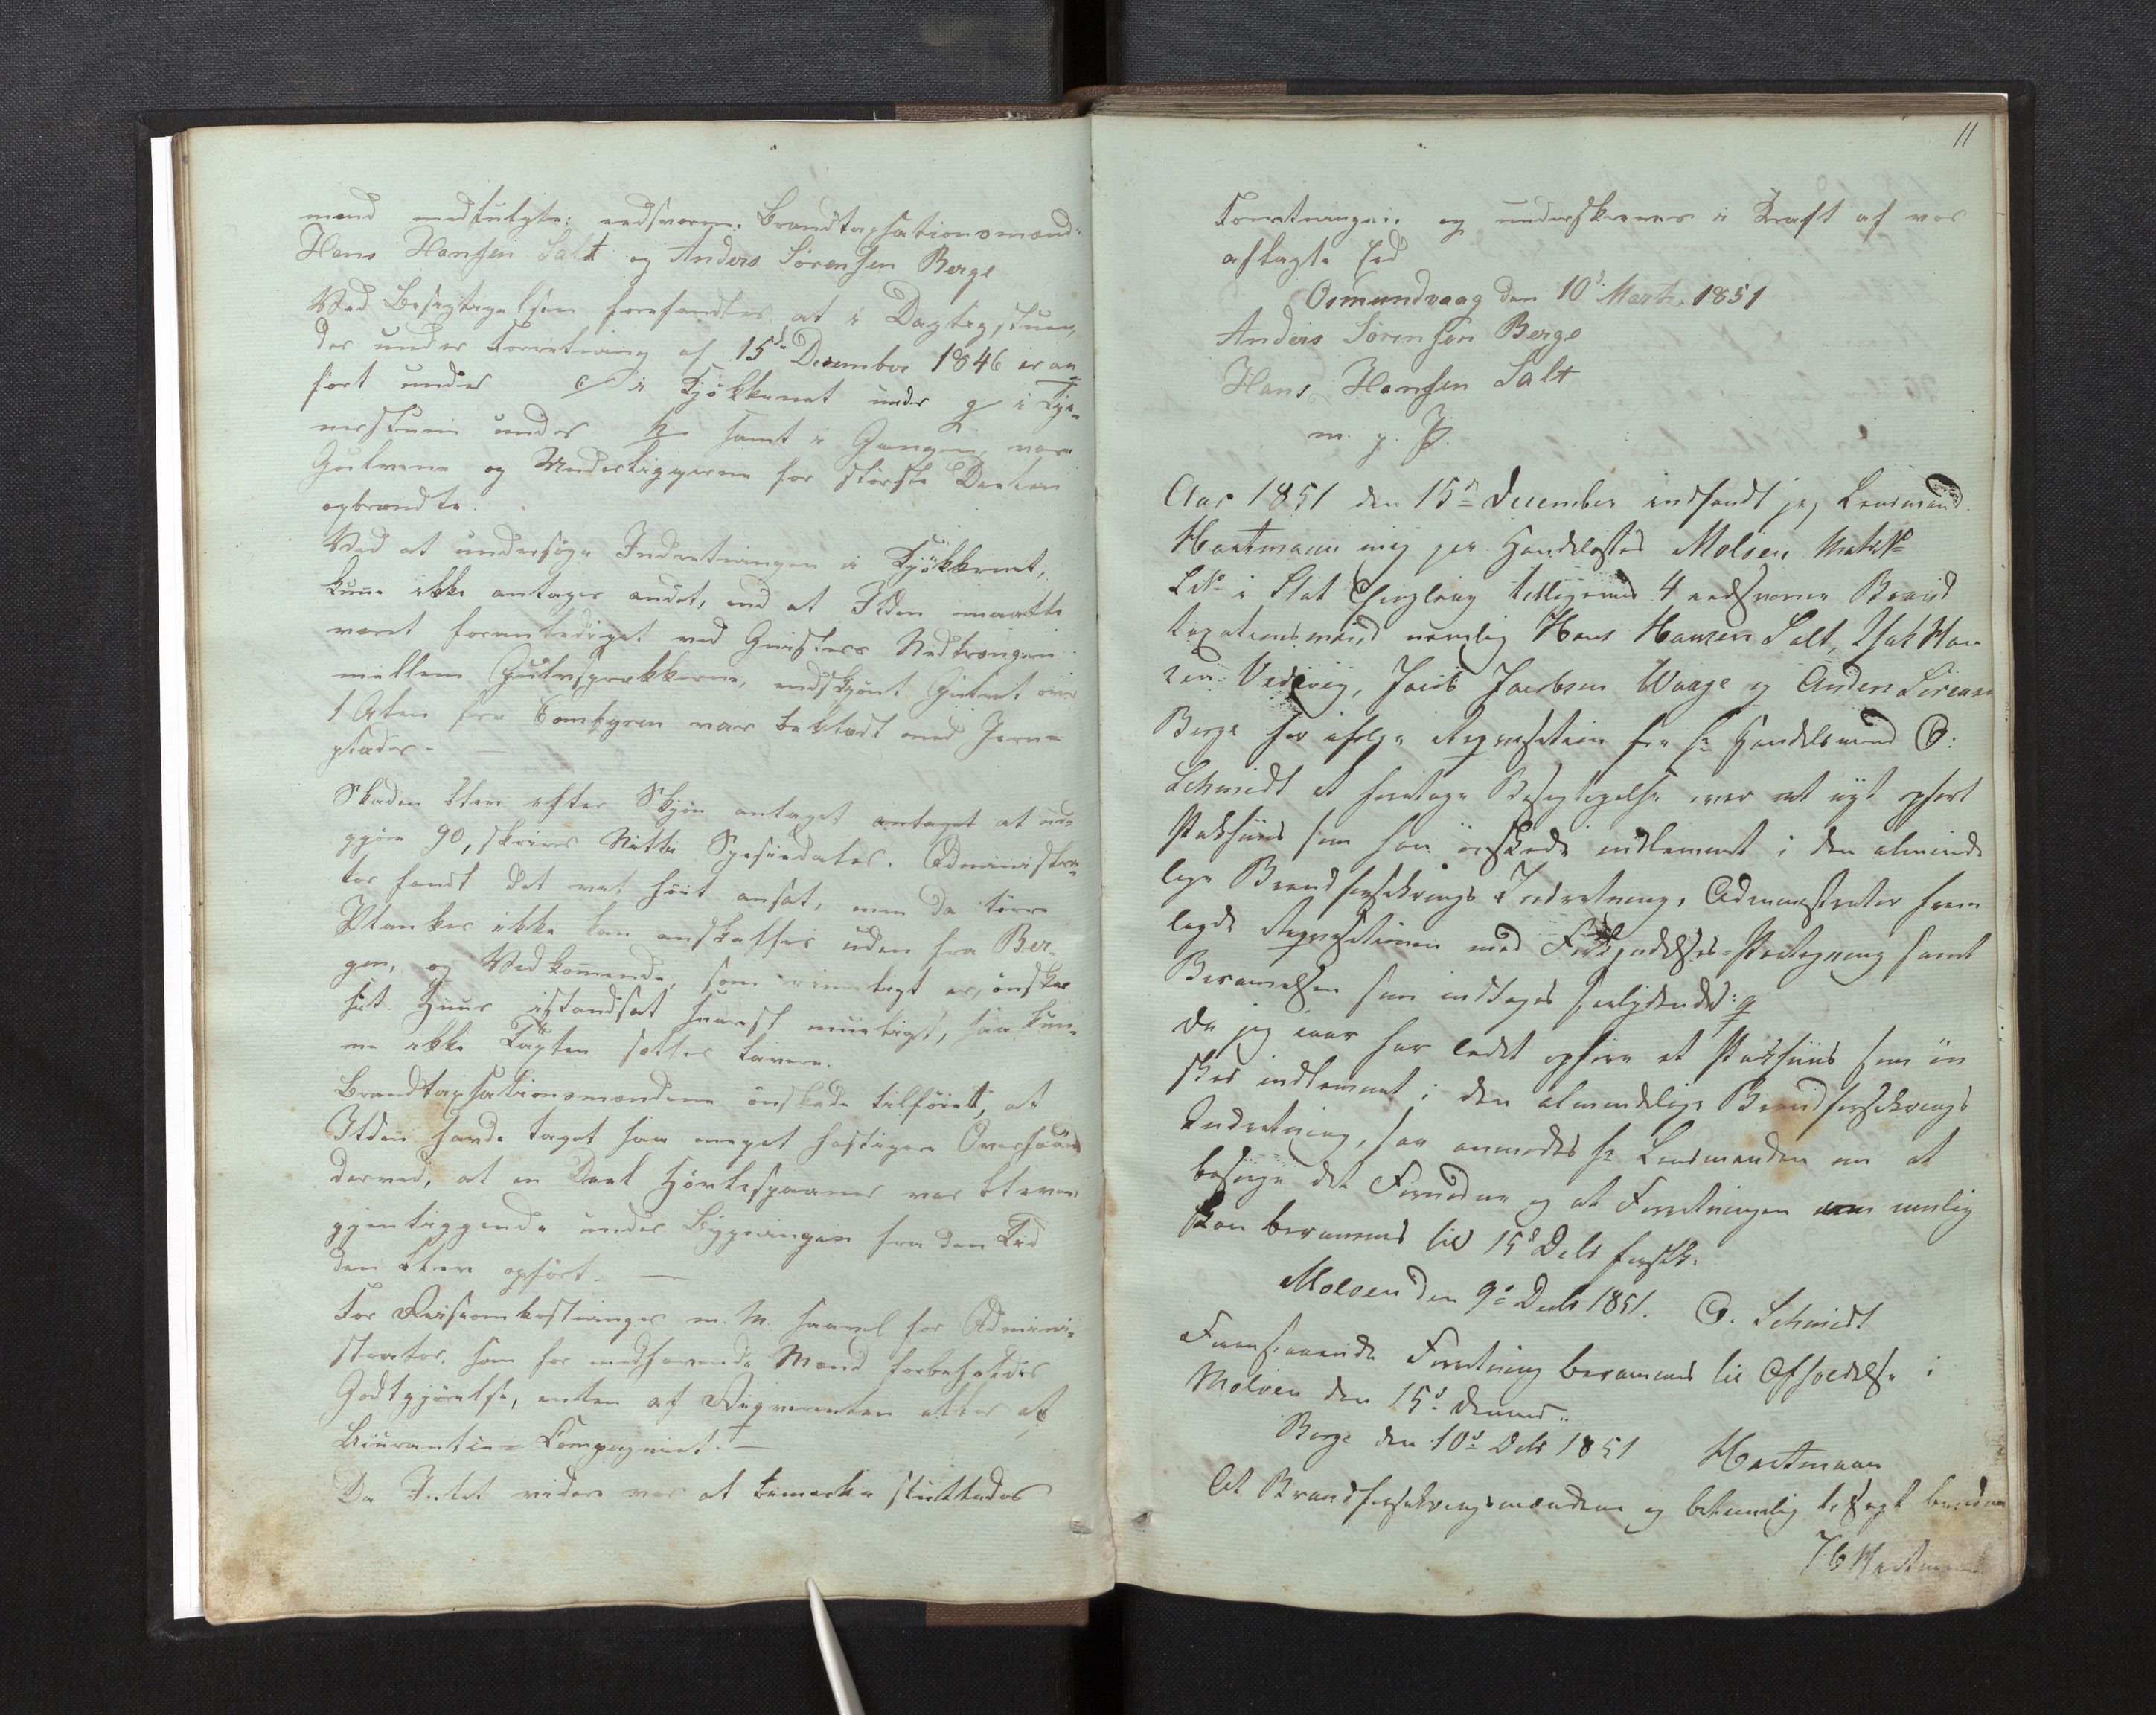 mand medfulgte: eedsvorne Brandtaxsationsmænd:
Hans Hansen Salt og Anders Sörensen Berge
Ved Besigtigelsen forefandtes at i Dagligstuen,
der under Forretning af 15d December 1846 er an-
fört under c i Kjökkenet under g i Tje-
nerstuen under h samt i Gangen, vare
Gulvene og Underliggerne for störste Deelen
opbrændte.
Ved at undersöge Indretningen i Kjökkenet,
kunde ikke antages andet, end at Ilden maatte
være foranlediget ved Gnisters Nedtrængen
mellem Gulvsprækkerne, endskjönt Gulvet over
1 Alen fra Komfyren var beklædt med Jern-
plader. —
Skaden blev efter Skjön antaget antaget at ud-
gjöre 90, skriver Nitti Speciedaler. Administra-
tor fandt det vel höit ansat, men da törre
Planker ikke kan anskaffes uden fra Ber-
gen, og Vedkommende, som rimeligt er, önsker
sit Huus istandsat snarest mueligt, saa kun-
ne ikke Taxten sættes lavere.
Brandtaxsationsmændene önskede tilföiet, at
Ilden havde taget saa meget hastigere Overhaand
derved, at en Deel Hövlespaaner var bleven
gjenliggende under Bygningen fra den Tid
den blev opfört. —
For Reiseomkostninger m. M. saavel for Admini-
strator som for medhavende Mænd forbeholdes
Godtgjörelse, enten af Reqvirenten eller af
Assurantie-Compagniet. —
Da Intet videre var at bemærke sluttedes
11
Forretningen og underskreves i Kraft af vor
aflagte Eed
Osmundvaag den 10d Marts 1851
Anders Sörensen Berge
Hans Hansen Salt
m. p. P.
Aar 1851 den 15de December indfandt jeg Lensmand
Hartmann mig paa Handelsstedet Moldöen Matr No
L No i Stat tilligemed 4 eedsvorne Brand
taxationsmænd nemlig Hans Hansen Salt, Isak Han
sen Vedvig, Jacob Jacobsen Waage og Anders Sörensen
Berge for ifölge Reqvisition fra Hr Handelsmand C:
Schmidt at foretage Besigtigelse over et nyt opfört
Pakhuus som han önskede indlemmet i den alminde
lige Brandforsikrings Indretning. Administrator frem
lagde Reqvisitionen med Forkyndelses-Paategning samt
Berammelsen som indtages saalydende:
Da jeg iaar har ladet opföre et Pakhuus som ön
skes indlemmet i den almindelige Brandforsikrings
Indretning, saa anmodes Hr Lensmanden om at
besörge det Fornödne og at Forretningen om muelig
kan berammes til 15d Decbr förstk.
Moldöen den 9d Decbr 1851. C. Schmidt
Foranstaaende Forretning berammes til Afholdelse i
Moldöen den 15d dennes.
Berge den 10d Decbr 1851 Hartmann
At Brandforsikringsmændene ere betimelig tilsagt
Hartmann